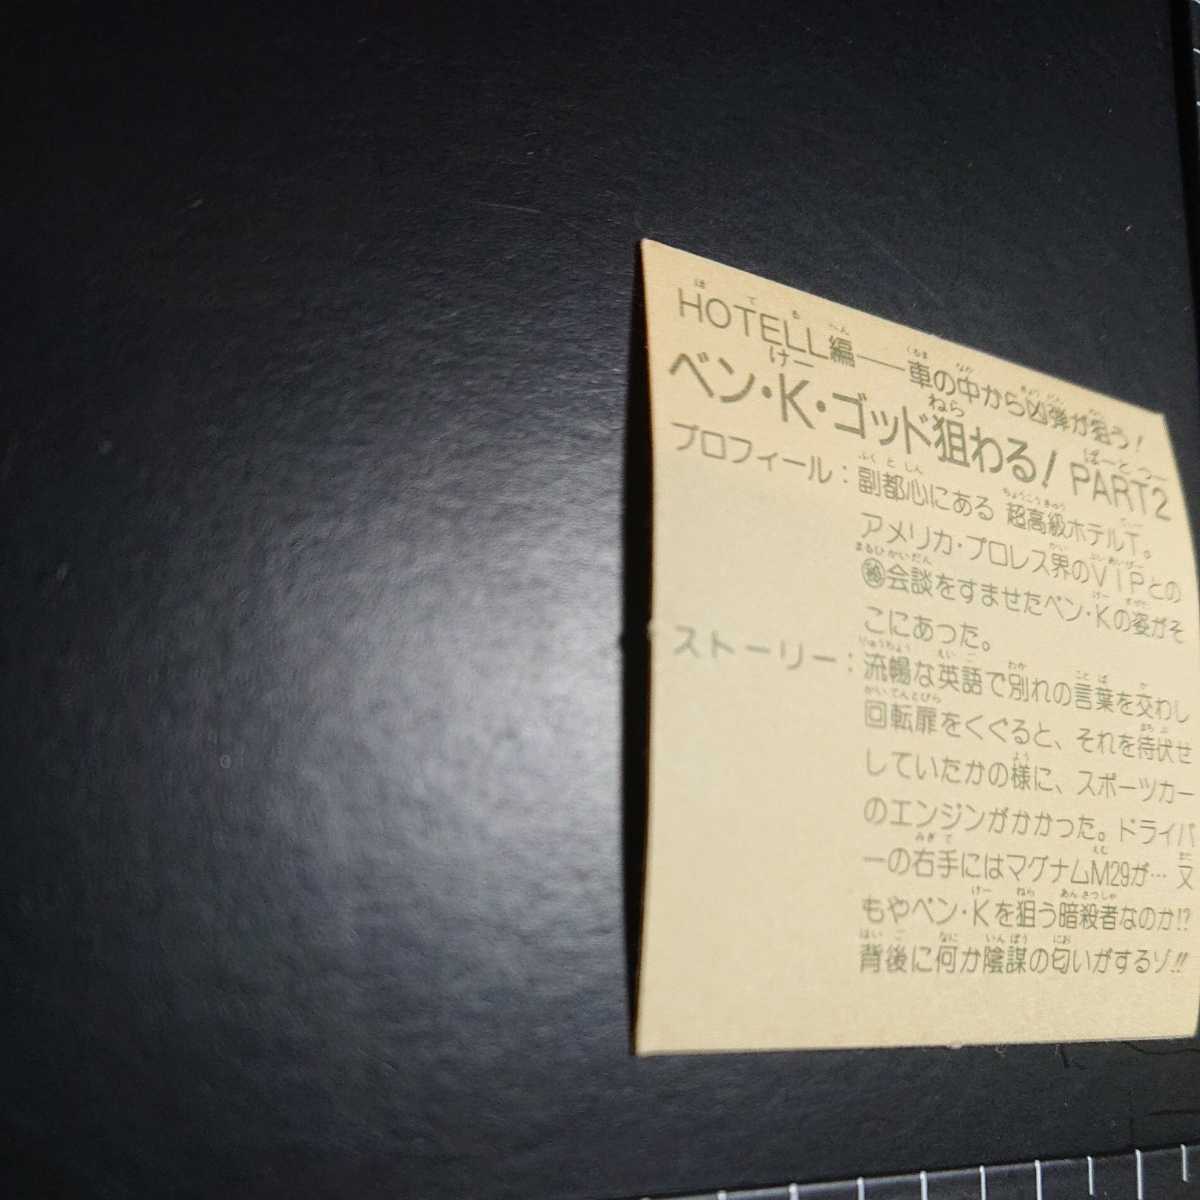 HOTELL編──車の中から凶弾が狙う!
ベン・K・ゴッド狙わる! PART2
プロフィール：副都心にある 超高級ホテルT。
アメリカ・プロレス界のVIPとの
㊙会談をすませたベン・Kの姿がそ
こにあった。
ストーリー：流暢な英語で別れの言葉を交わし
回転扉をくぐると、それを待伏せ
していたかの様に、スポーツカー
のエンジンがかかった。ドライバ
ーの右手にはマグナムM29が… 又
もやベン・Kを狙う暗殺者なのか!?
背後に何か陰謀の匂いがするゾ!!